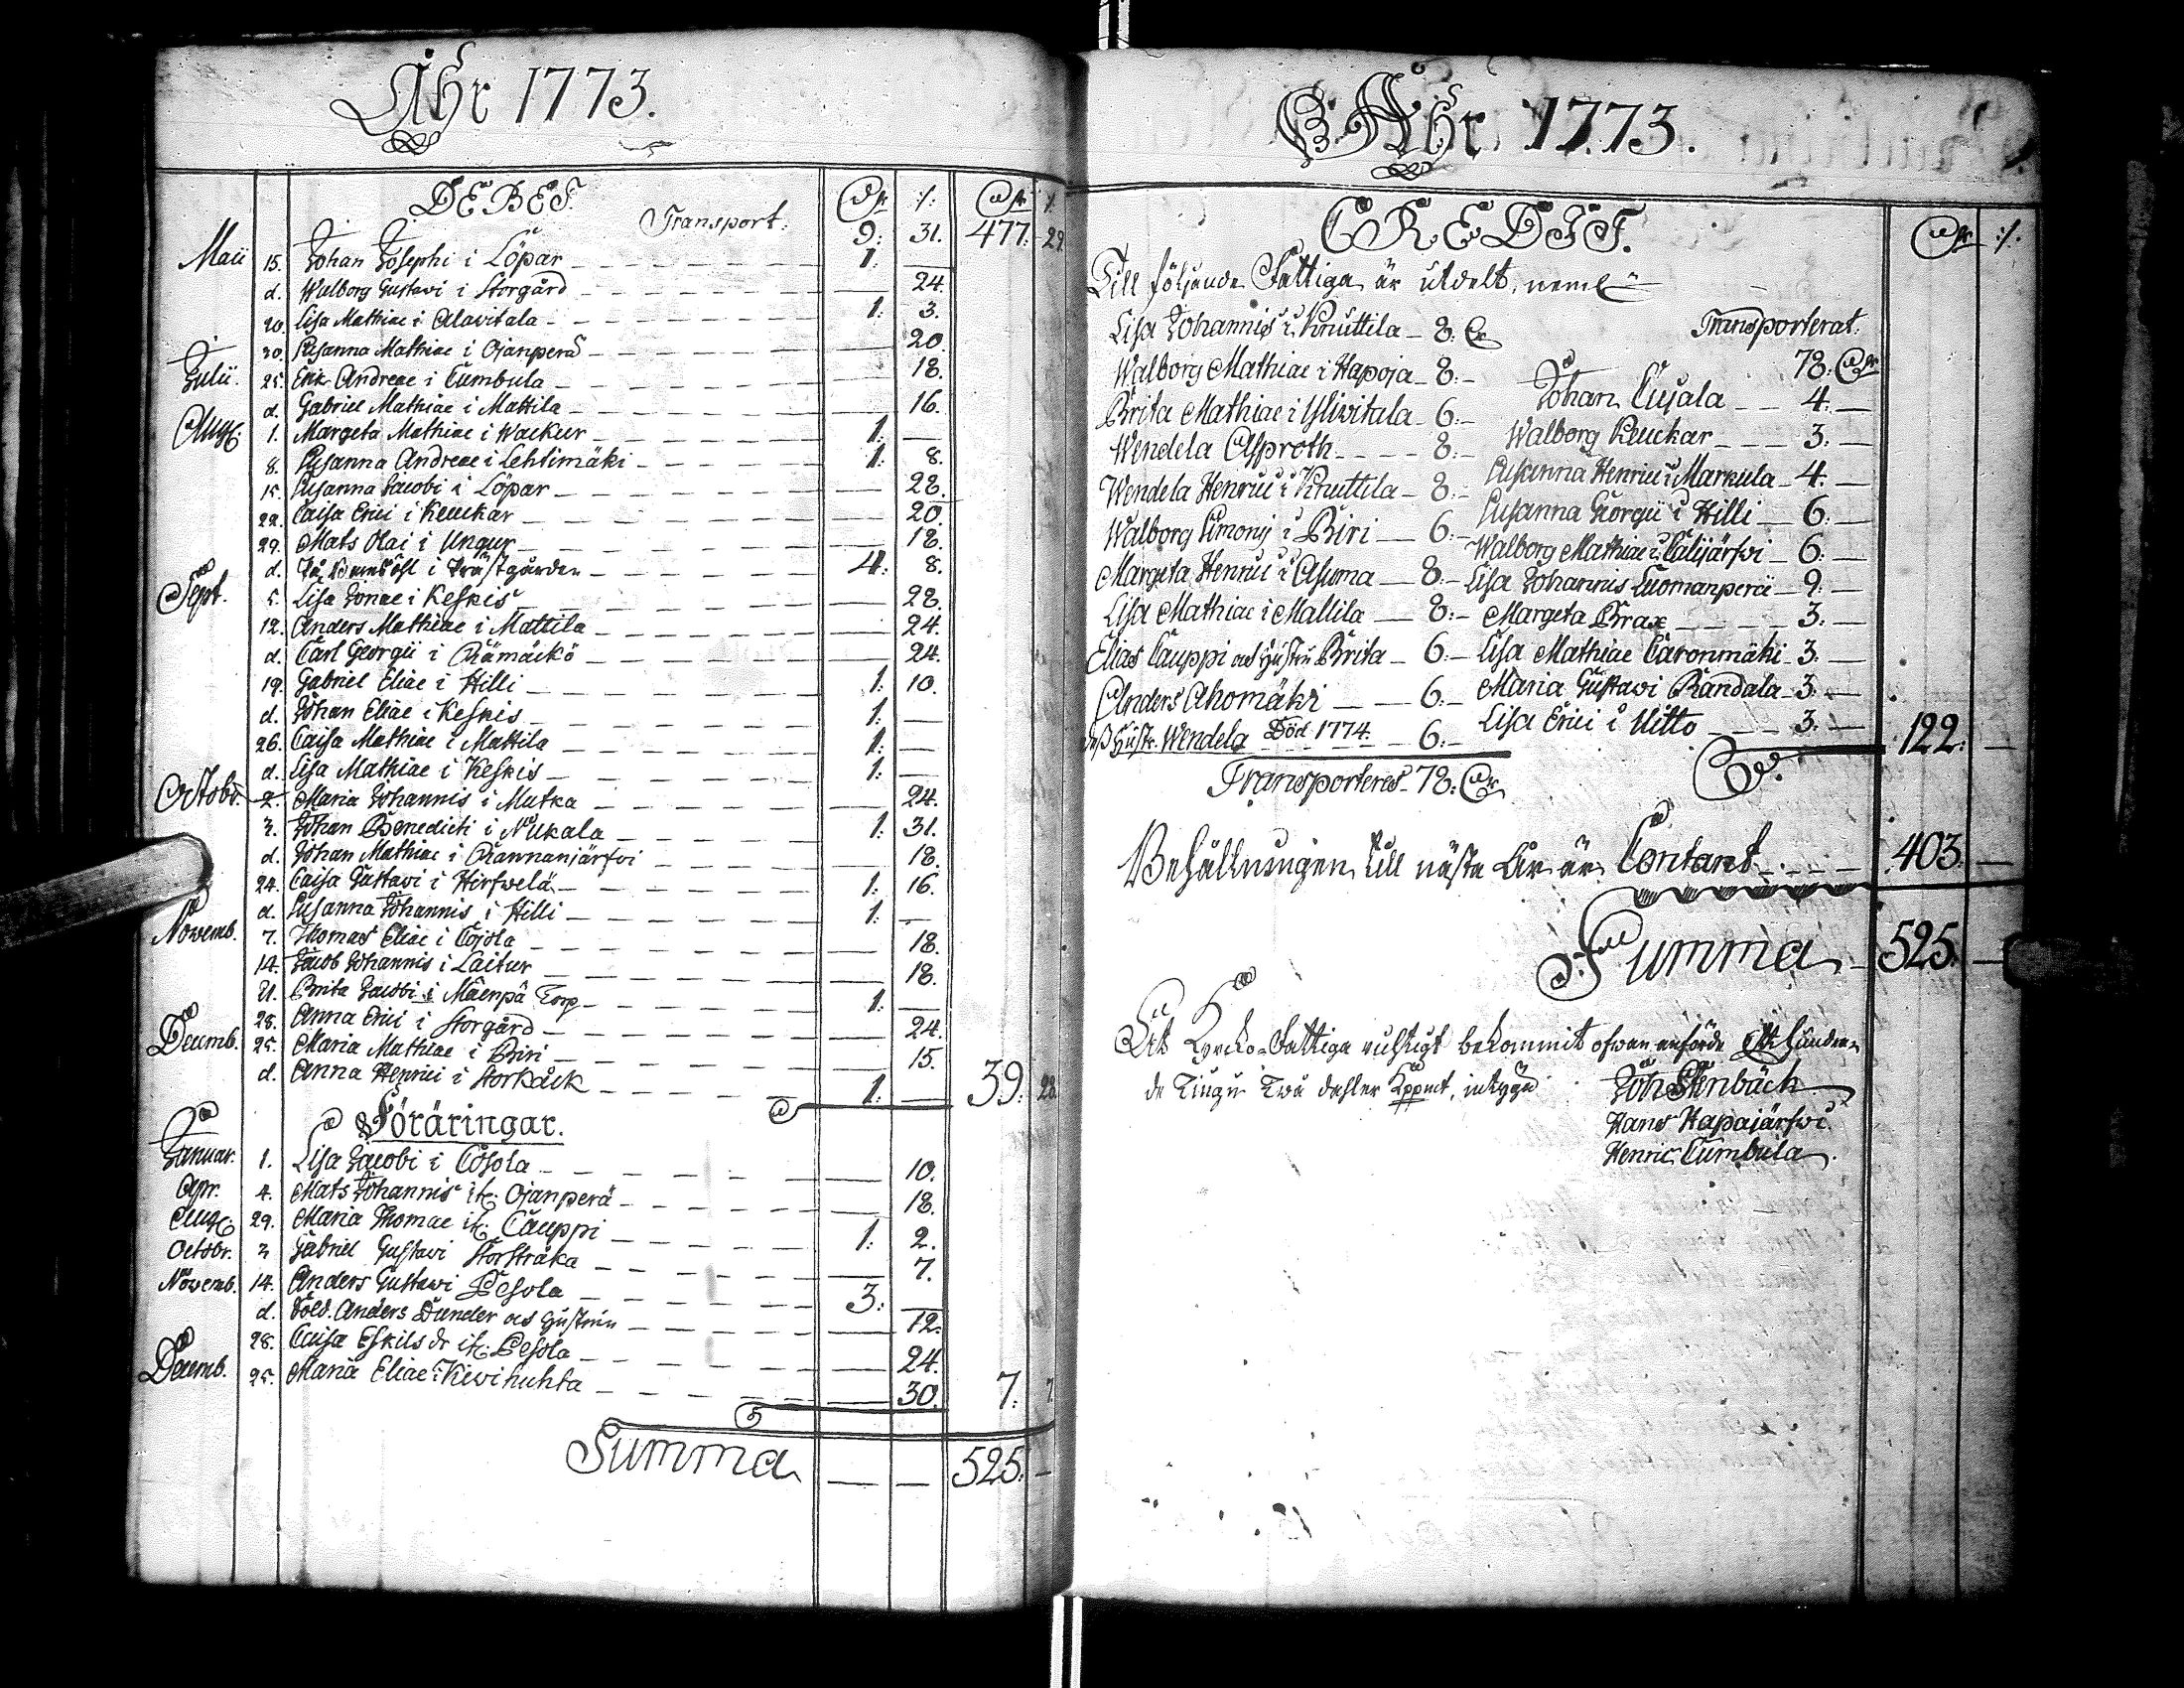 Åhr 1773.
DEBET. Dlr :/: Dlr :/:
Transport. 9: 31. 477: 29.
Maii 15. Johan Josephi i Löpar 1: —
d. Walborg Gustavi i Storgård — 24.
20. Lisa Mathiae i Alavitala 1: 3.
30. Susanna Mathiae i Ojanperä — 20.
Julii. 25. Erik Andreae i Cumbula — 18.
d. Gabriel Mathiae i Mattila — 16.
Aug: 1. Margeta Mathiae i Wackur 1: —
8. Susanna Andreae i Lehtimäki 1: 8.
15. Susanna Jacobi i Löpar — 28.
22. Caisa Erici i Keuckar — 20.
29. Mats Olai i Ungur — 18.
d. i Prästgården 4: 8.
Sept. 5. Lisa Jonae i Keskis — 28.
12. Anders Mathiae i Mattila — 24.
d. Carl Georgii i Rämäckö — 24.
19. Gabriel Eliae i Hilli 1: 10.
d. Johan Eliae i Keskis 1: —
26. Caisa Mathiae i Mattila 1: —
d. Lisa Mathiae i Keskis 1: —
Octobr. 2. Maria Johannis i Mutka — 24.
3. Johan Benedicti i Nukala 1: 31.
d. Johan Mathiae i Rannanjärfvi — 18.
24. Caisa Gustavi i Hirfvelä 1: 16.
d. Susanna Johannis i Hilli 1: —
Novemb. 7. Thomas Eliae i Cojola — 18.
14. Jacob Johannis i Laitur — 18.
21. Brita Jacobi i Mäenpä Torp 1: —
28. Anna Erici i Storgård — 24.
Decemb. 25. Maria Mathiae i Biri — 15.
d. Anna Henrici i Storkåck 1: — 39: 28.
Föräringar.
Januar. 1. Lisa Jacobi i Cosola — 10.
Apr. 4. Mats Johannis it: Ojanperä — 18.
Aug: 29. Maria Thomae it: Cauppi 1: 2.
Octobr. 3 Gabriel Gustavi Storstråka — 7.
Novemb. 14. Anders Gustawi Pesola 3: —
d. Sold. Anders Dunder och Hustrun — 12.
28. Caisa Eskils dr it: Pesola — 24.
Decemb. 25. Maria Eliae i Kiwihuhta — 30. 7: 7.
Summa — — 525: —
Åhr 1773.
CREDIT. Dlr :/:
Till följande Fattiga är utdelt, neml
Lisa Johannis i Knuttila 8: Dr
Walborg Mathiae i Hapoja 8:
Brita Mathiae i Yliwitala 6:
Wendela Asproth 8:
Wendela Henrici i Knuttila 8:
Walborg Simonis i Biri 6:
Margeta Henrici i Asuma 8:
Lisa Mathiae i Mallila 8:
Elias Cauppi och hustru Brita 6:
Anders Ahomäki 6:
dess Hustr. Wendela Död 1774. 6:
Transporteres 78: Dr
Transporterat.
78: Dlr
Johan Cujala 4: —
Walborg Keuckar 3: —
Susanna Henrici i Markula 4: —
Susanna Georgii i Hilli 6: —
Walborg Mathiae i Calijärfwi 6: —
Lisa Johannis Tuomanperä 9: —
Margeta Brax 3: —
Lisa Mathiae Caronmäki 3: —
Maria Gustawi Randala 3: —
Lisa Erici i Uitto 3: — 122: —
Behållningen till nästa År är Contant 403: —
Summa 525: —
Att Kyrcko-Fattiga richtigt bekommit ofwan anförde Ett hundra
de Tiugu Twå dahler Kppmt, intyga
Joh Stenbäck
Hans Hapajärfwi.
Henric Cumbula.